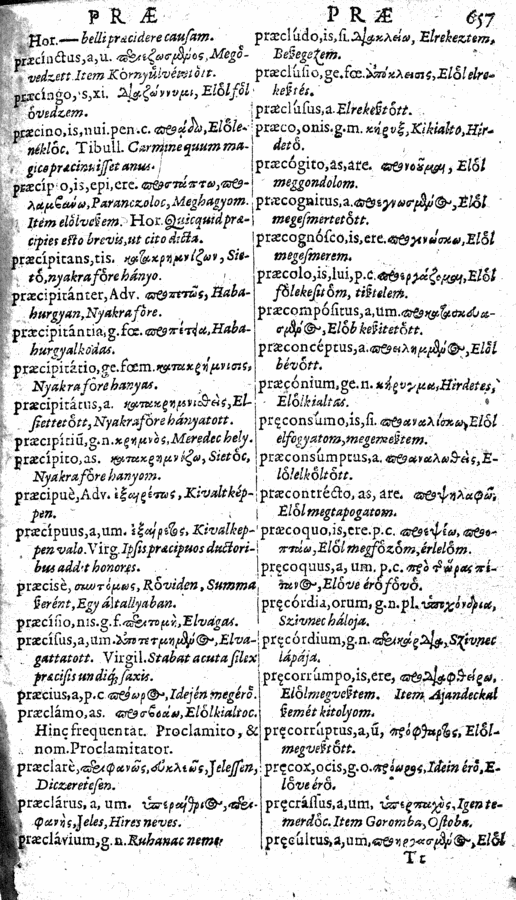 PRÆ
PRÆ 657
Hor.— belli præcidere causam.
præcinctus, a, u. περιεζωσμένος, Megö-
vedzett. Item Környűlvétetött.
præcingo, is, xi. διαζώννυμι, Elöl föl
övedzem.
præcino, is, nui. pen. c. προᾴδω, Elöle-
néklöc. Tibull. Carmine quum ma-
gico præcinuisset anus.
præcipio, is, epi, ere. προστάττω, προ-
λαμβάνω, Paranczoloc, Meghagyom.
Item elölueßem. Hor. Quicquid præ-
cipies esto brevis, ut cito dicta.
præcipitans, tis. κατακρημνίζων, Sie-
tö, nyakra före hányo.
præcipitanter, Adv. προπετῶς, Haba-
hurgyan, Nyakra före.
præcipitántia, g. fœ. προπέτεια, Haba-
hurgyalkodas.
præcipitátio, ge. fœm. κατακρήμνισις,
Nyakra före hanyas.
præcipitátus, a. κατακρημνισθεὶς, El-
siettetött, Nyakra före hányatott.
præcipitiũ, g. n. κρημνὸς, Meredec hely.
præcípito, as. κατακρημνίζω, Sietöc,
Nyakra före hanyom.
præcipuè, Adv. ἐξαιρέτως, Kivaltkép-
pen.
præcípuus, a, um. ἐξαίρετος, Kivalkep-
pen valo. Virg. Ipsis præcipuos ductori-
bus addit honores.
præcisè, συντόμως, Röviden, Summa
ßerént, Egy általlyaban.
præcísio, nis. g. f. περιτομή, Elvagas.
præcísus, a, um. ἀποτετμημένος, Elva-
gattatott. Virgil. Stabat acuta silex
præcisis undiq; saxis.
præcius, a, p. c. πρόωρος, Idején megérö.
præclámo, as. προσβοάω, Elöl kialtoc.
Hinc frequentat. Proclamito, &
nom. Proclamitator.
præclarè, περιφανῶς, εὐκλεῶς, Jelessen,
Diczeretesen.
præclárus, a, um. ὑπεραίθριος, περι-
φανὴς, Jeles, Hires neves.
præclávium, g. n. Ruhanac neme
præclúdo, is, si. διακλείω, Elrekeztem,
Beßegezem.
præclúsio, ge. fœ. ἀπόκλεισις, Elöl elre-
keßtés.
præclúsus, a. Elrekeßtött.
præco, onis. g. m. κήρυξ, Kikialto, Hir-
detö.
præcógito, as, are. προνοῦμαι, Elöl
meggondolom.
præcognitus, a. προεγνωσμένος, Elöl
megesmertetött.
præcognósco, is, ere. προγινώσκω, Elöl
megesmerem.
præcolo, is, lui, p. c. προεργάζομαι, Elöl
fölekeßitöm, tißtelem.
præcompósitus, a, um. προκατασκευα-
σμένος, Elöb keßitetött.
præconcéptus, a. προειλημμένος, Elöl
bévött.
præcónium, ge. n. κήρυγμα, Hirdetes,
Elöl kialtas.
pręconsumo, is, si. προαναλίσκω, Elöl
elfogyatom, megemeßtem.
præconsumptus, a. προαναλωθεὶς, E-
löl elköltött.
præcontrécto, as, are. προψηλαφῶ,
Elöl megtapogatom.
præcoquo, is, ere. p. c. προεψέω, προο-
πτάω, Elöl megfözöm, érlelöm.
pręcoquus, a, um. p. c. πρὸ τῆς ὥρας πέ-
πων, Elöve érö fövö.
pręcórdia, orum, g. n. pl. ὑποχόνδρια,
Szivnec háloja.
pręcórdium, g. n. περικάρδια, Szivnec
lápája.
pręcorrúmpo, is, ere, προδιαφθείρω,
Elöl megveßtem. Item Ajandeckal
ßemét kitolyom.
pręcorrúptus, a, ũ, πρόφθαρτος, Elöl-
megveßtött.
pręcox, ocis, g. o. πρόωρος, Idein érö, E-
löve érö.
pręcrássus, a, um. ὑπερπαχὺς, Igen te-
merdöc. Item Goromba, Ostoba.
pręcultus, a, um, προηργασμένος, Elöl
Tt